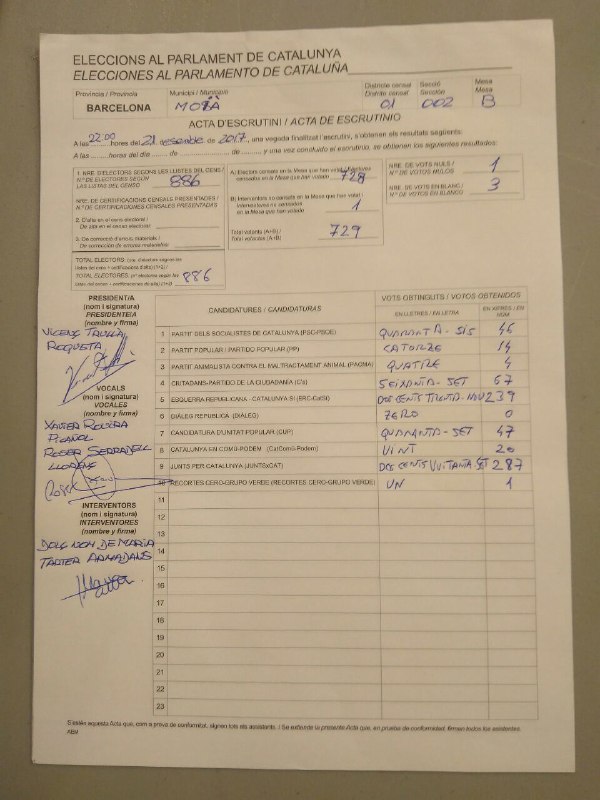 ELECCIONS AL PARLAMENT DE CATALUNYA
ELECCIONES AL PARLAMENTO DE CATALUÑA
Província / Provincia
BARCELONA
Municipi / Municipio
MOIÀ
Districte censal
Distrito censal
01
Secció
Sección
002
Mesa
Mesa
B
ACTA D'ESCRUTINI / ACTA DE ESCRUTINIO
A les 22:00 hores del 21 desembre de 2017, una vegada finalitzat l'escrutini, s'obtenen els resultats següents:
A las ......... horas del día ......... de ......... de ......... y una vez concluido el escrutinio, se obtienen los siguientes resultados:
1. NRE. D'ELECTORS SEGONS LES LLISTES DEL CENS /
N.º DE ELECTORES SEGÚN
LAS LISTAS DEL CENSO
886
NRE. DE CERTIFICACIONS CENSALS PRESENTADES /
N.º DE CERTIFICACIONES CENSALES PRESENTADAS
2. D'alta en el cens electoral /
De alta en el censo electoral
3. De correcció d'errors materials /
De corrección de errores materiales
TOTAL ELECTORS
TOTAL ELECTORES
886
A) Electors censats en la Mesa que han votat / Electores
censados en la Mesa que han votado
728
B) Interventors no censats en la Mesa que han votat /
Interventores no censados
en la Mesa que han votado
1
Total votants (A+B) /
Total votantes (A+B)
729
NRE. DE VOTS NULS /
N.º DE VOTOS NULOS
1
NRE. DE VOTS EN BLANC /
N.º DE VOTOS EN BLANCO
3
PRESIDENT/A
(nom i signatura)
PRESIDENTE/A
(nombre y firma)
VOCALS
(nom i signatura)
VOCALES
(nombre y firma)
XAVIER
ROSER
INTERVENTORS
(nom i signatura)
INTERVENTORES
(nombre y firma)
DE MARIA
CANDIDATURES / CANDIDATURAS
VOTS OBTINGUTS / VOTOS OBTENIDOS
EN LLETRES / EN LETRA
EN XIFRES / EN NÚM.
1 PARTIT DELS SOCIALISTES DE CATALUNYA (PSC-PSOE) QUARANTA-SIS 46
2 PARTIT POPULAR / PARTIDO POPULAR (PP) CATORZE 14
3 PARTIT ANIMALISTA CONTRA EL MALTRACTAMENT ANIMAL (PACMA) QUATRE 4
4 CIUTADANS-PARTIDO DE LA CIUDADANÍA (C's) SEIXANTA-SET 67
5 ESQUERRA REPUBLICANA - CATALUNYA SÍ (ERC-CatSí) DOS CENTS TRENTA-NOU 239
6 DIÀLEG REPÚBLICA (DIÀLEG) ZERO 0
7 CANDIDATURA D'UNITAT POPULAR (CUP) QUARANTA-SET 47
8 CATALUNYA EN COMÚ-PODEM (CatComú-Podem) VINT 20
9 JUNTS PER CATALUNYA (JUNTSxCAT) DOS CENTS VUITANTA SET 287
10 RECORTES CERO-GRUPO VERDE (RECORTES CERO-GRUPO VERDE) UN 1
11
12
13
14
15
16
17
18
19
20
21
22
23
S'estén aquesta Acta que, com a prova de conformitat, signen tots els assistents. / Se extiende la presente Acta que, en prueba de conformidad, firman todos los asistentes.